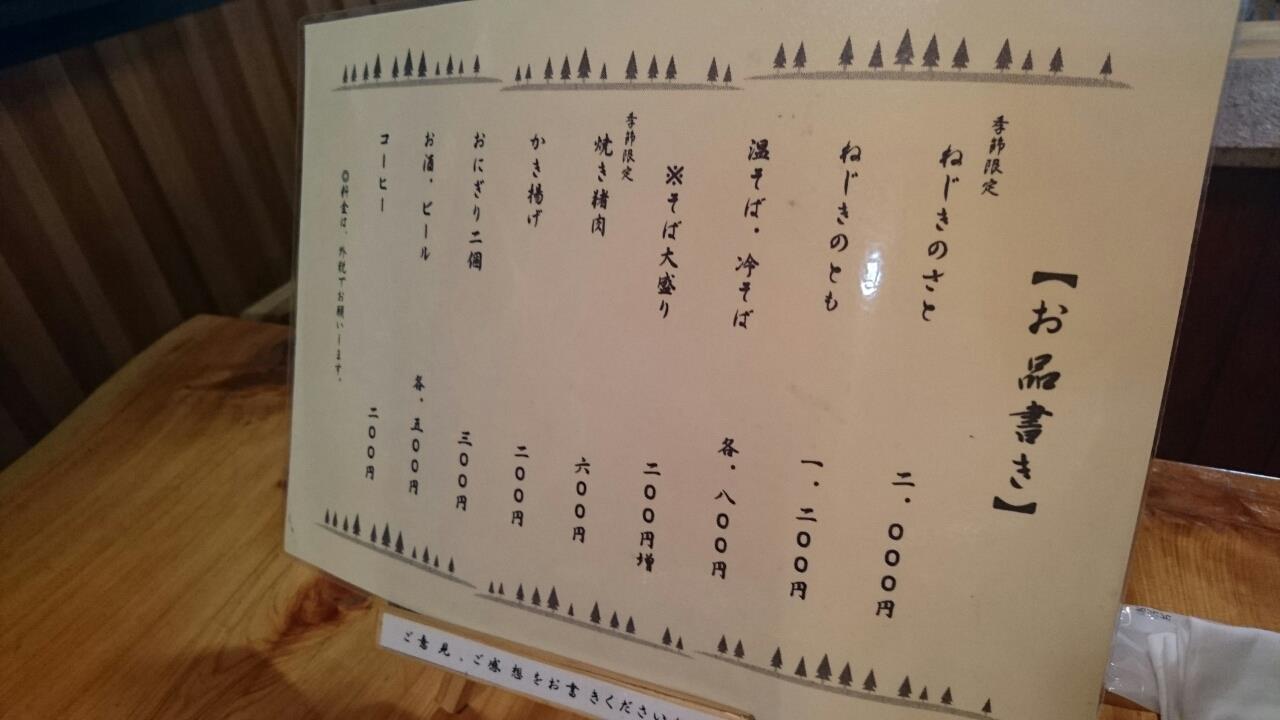 【お品書き】
季節限定
ねじきのさと 二.〇〇〇円
ねじきのとも 一.二〇〇円
温そば.冷そば 各.八〇〇円
※そば大盛り 二〇〇円増
季節限定
焼き猪肉 六〇〇円
かき揚げ 二〇〇円
おにぎり二個 三〇〇円
お酒.ビール 各.五〇〇円
コーヒー 二〇〇円
◎料金は、外税でお願いします。
ご意見、ご感想をお書きください